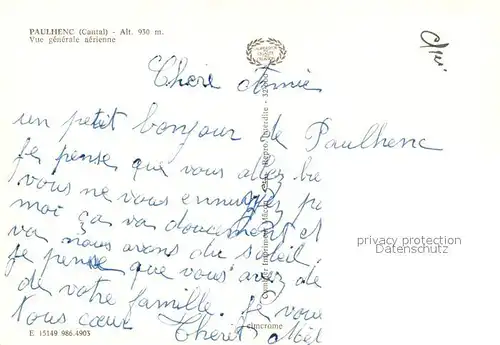 PAULHENC (Cantal) - Alt. 950 m.
Vue générale aérienne
Chère Amie
un petit bonjour de Paulhenc
Je pense que vous allez bie
vous ne vous ennuyez pa
moi ça va doucement et
va nous avons du soleil.
Je pense que vous avez de
de votre famille. Je vou
tous cœur
privacy protection
Datenschutz
E 15149 986.4903
elmcrome